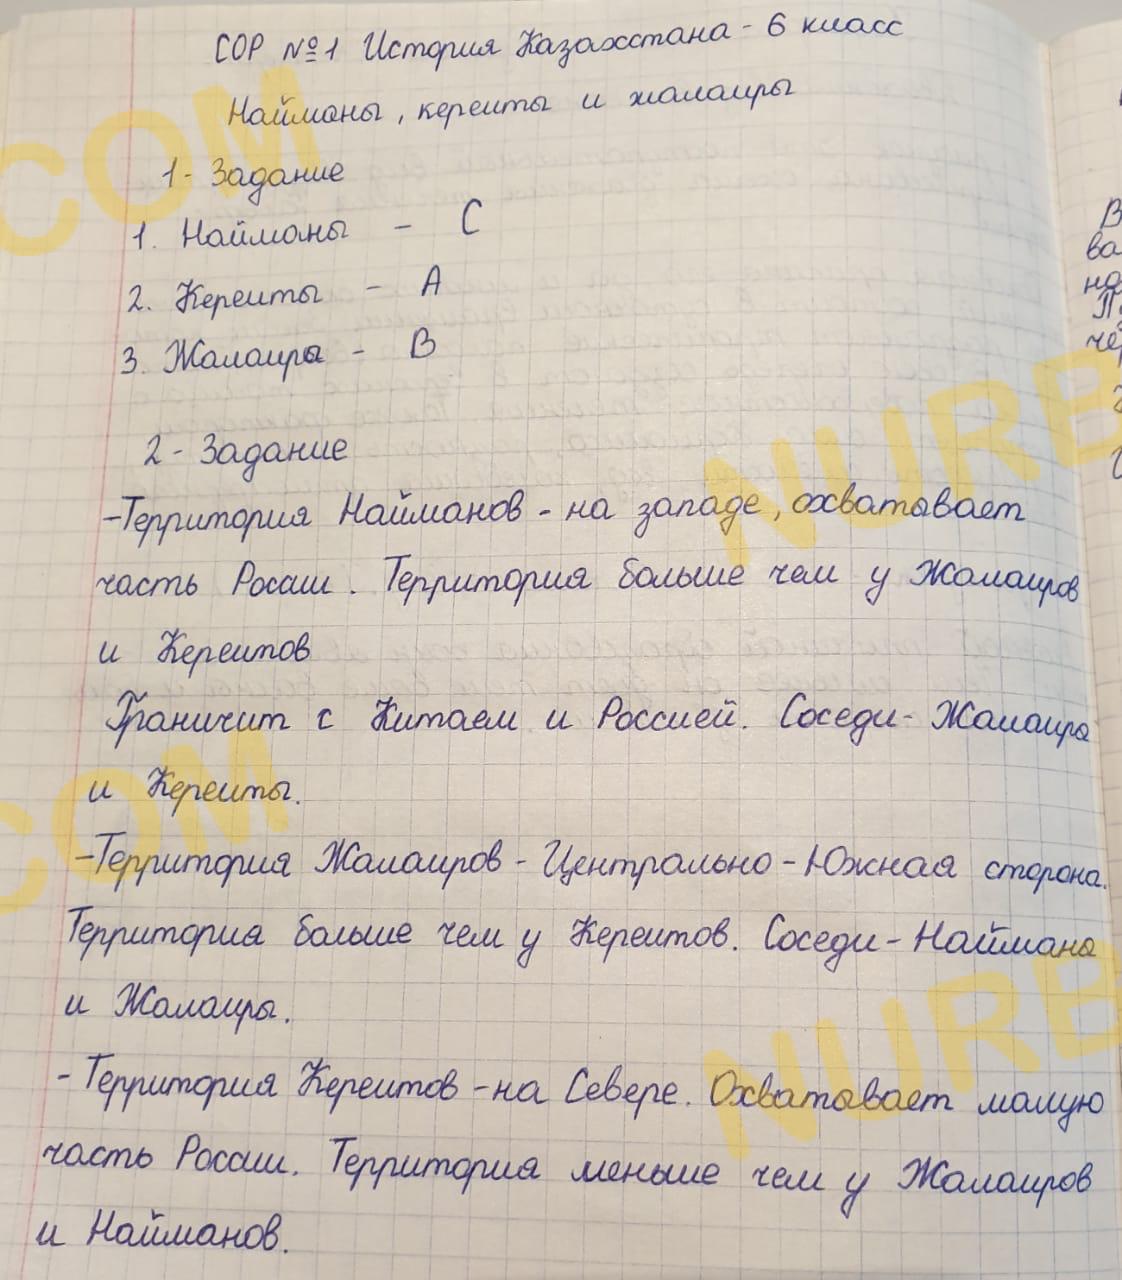 СОР №1 История Казахстана - 6 класс
Найманы, кереиты и жалаиры
1- Задание
1. Найманы - С
2. Кереиты - А
3. Жалаиры - В
2- Задание
-Территория Найманов - на западе, охватывает
часть России. Территория больше чем у Жалаиров
и Кереитов
Граничит с Китаем и Россией. Соседи- Жалаиры
и Кереиты.
-Территория Жалаиров - Центрально-Южная сторона.
Территория больше чем у Кереитов. Соседи-Найманы
и Жалаиры.
- Территория Кереитов -на Севере. Охватывает малую
часть России. Территория меньше чем у Жалаиров
и Найманов.
COM
NURB
COM
NURB